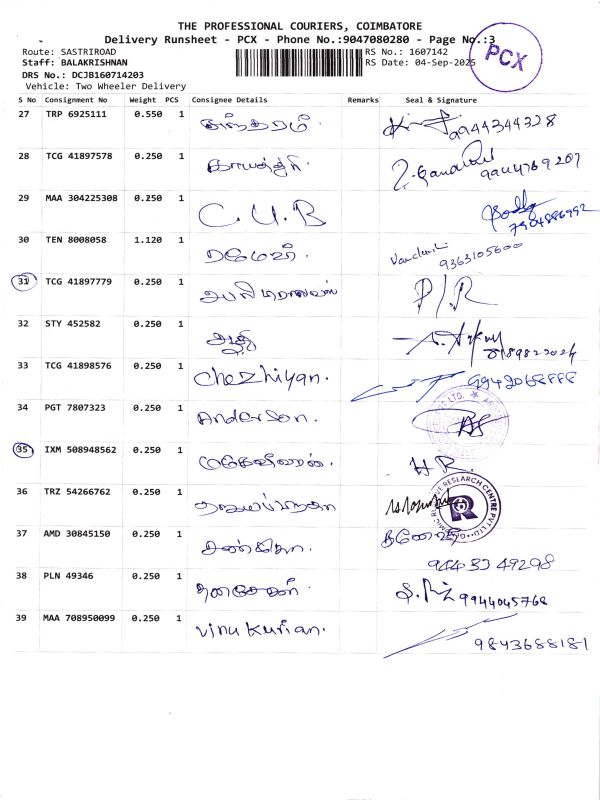 THE PROFESSIONAL COURIERS, COIMBATORE
Delivery Runsheet - PCX - Phone No.:9047080280 - Page No.:3
Route: SASTRIROAD RS No.: 1607142
Staff: BALAKRISHNAN RS Date: 04-Sep-2025
PCX
DRS No.: DCJB160714203
Vehicle: Two Wheeler Delivery
S No Consignment No Weight PCS Consignee Details Remarks Seal & Signature
27 TRP 6925111 0.550 1 சுந்தரம். 9944344328
28 TCG 41897578 0.250 1 காயத்ரி. 9944769207
29 MAA 304225308 0.250 1 C.U.B 7904886992
30 TEN 8008058 1.120 1 ரமேஷ். 9363105600
31 TCG 41897779 0.250 1 P/R
32 STY 452582 0.250 1
33 TCG 41898576 0.250 1 Chezhiyan. 9942068888
34 PGT 7807323 0.250 1 Anderson.
35 IXM 508948562 0.250 1 H R.
36 TRZ 54266762 0.250 1
RESEARCH CENTRE PVT LTD.
R
37 AMD 30845150 0.250 1 9443349298
38 PLN 49346 0.250 1 தனசேகர். 9944045768
39 MAA 708950099 0.250 1 Vinu Kurian. 9843688181